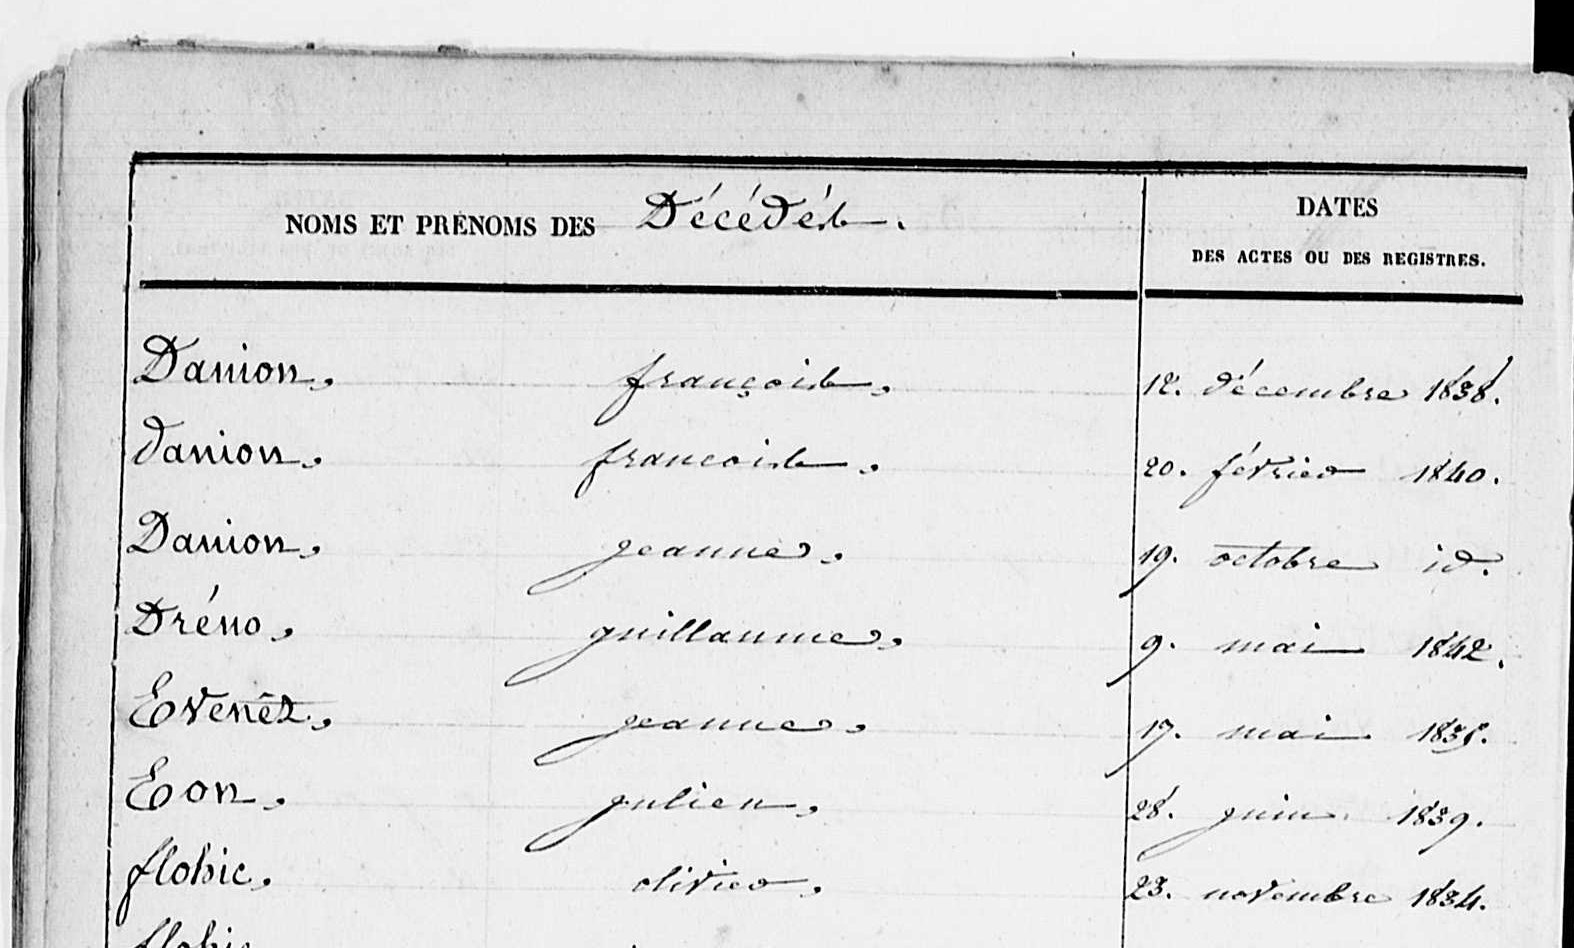 NOMS ET PRÉNOMS DES Décédés.
DATES
DES ACTES OU DES REGISTRES.
Danion, françois, 12. décembre 1838.
danion, francois, 20. février 1840.
Danion, jeanne, 19. octobre id.
Dréno, guillaume, 9. mai 1842.
Evenêz, jeanne, 17. mai 1835.
Eon, julien, 28. juin 1839.
flohic, olivier, 23. novembre 1834.
flohic